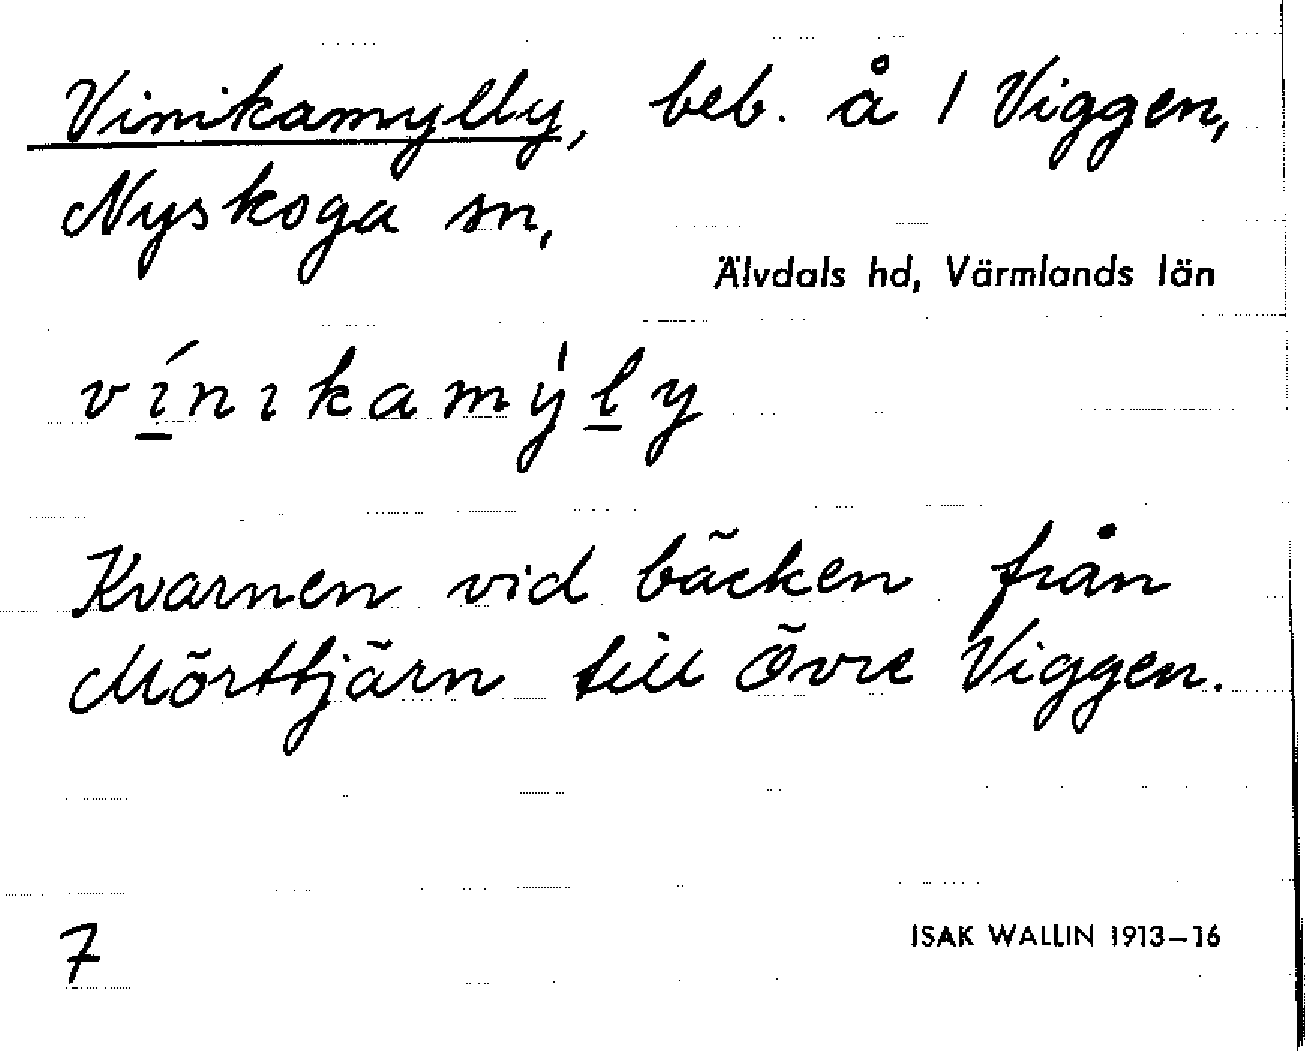 Vinikamylly, beb. å 1 Viggen,
Nyskoga sn,
Älvdals hd, Värmlands län
v í̱ n ı k a m ý ḻ y
Kvarnen vid bäcken från
Mörttjärn till Övre Viggen.
7
ISAK WALLIN 1913–16